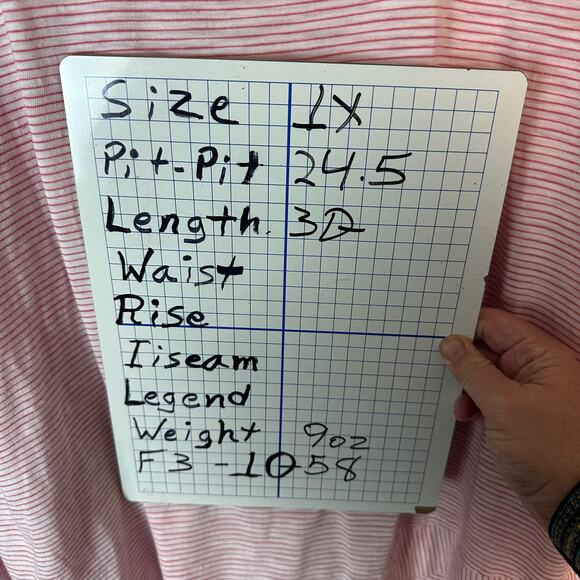 Size 1X
Pit-Pit 24.5
Length. 30
Waist
Rise
Iiseam
Legend
Weight 9oz
F3-1058